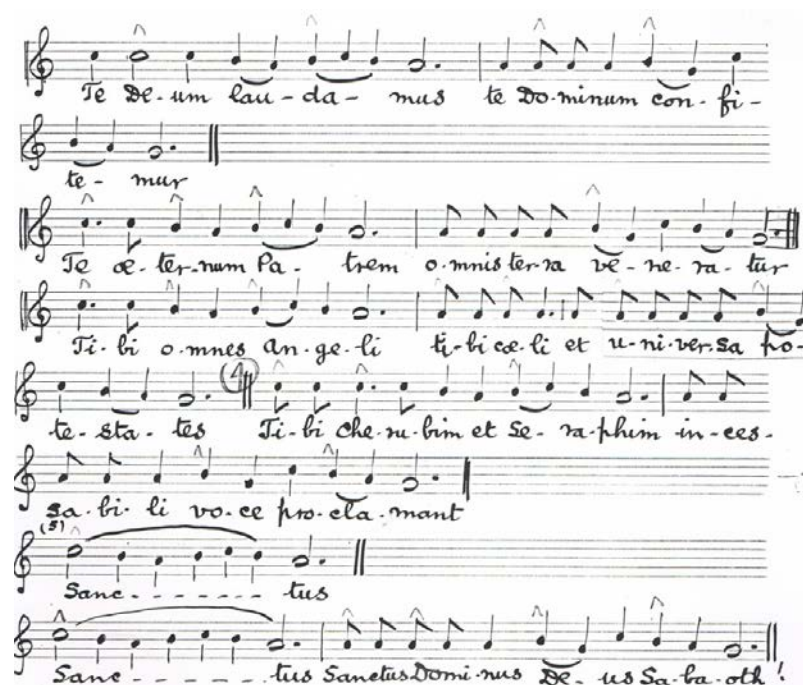 Te De-um lau-da-mus te Do-minum con-fi-
te-mur
Te œ-ter-num Pa-trem o-mnis ter-ra ve-ne-ra-tur
Ti-bi o-mnes An-ge-li ti-bi cœ-li et u-ni-ver-sa po-
(4)
te-sta-tes Ti-bi che-ru-bim et Se-ra-phim in-ces-
sa-bi-li vo-ce pro-cla-mant
(5)
Sanc------tus
Sanc-----tus Sanctus Domi-nus De-us Sa-ba-oth!